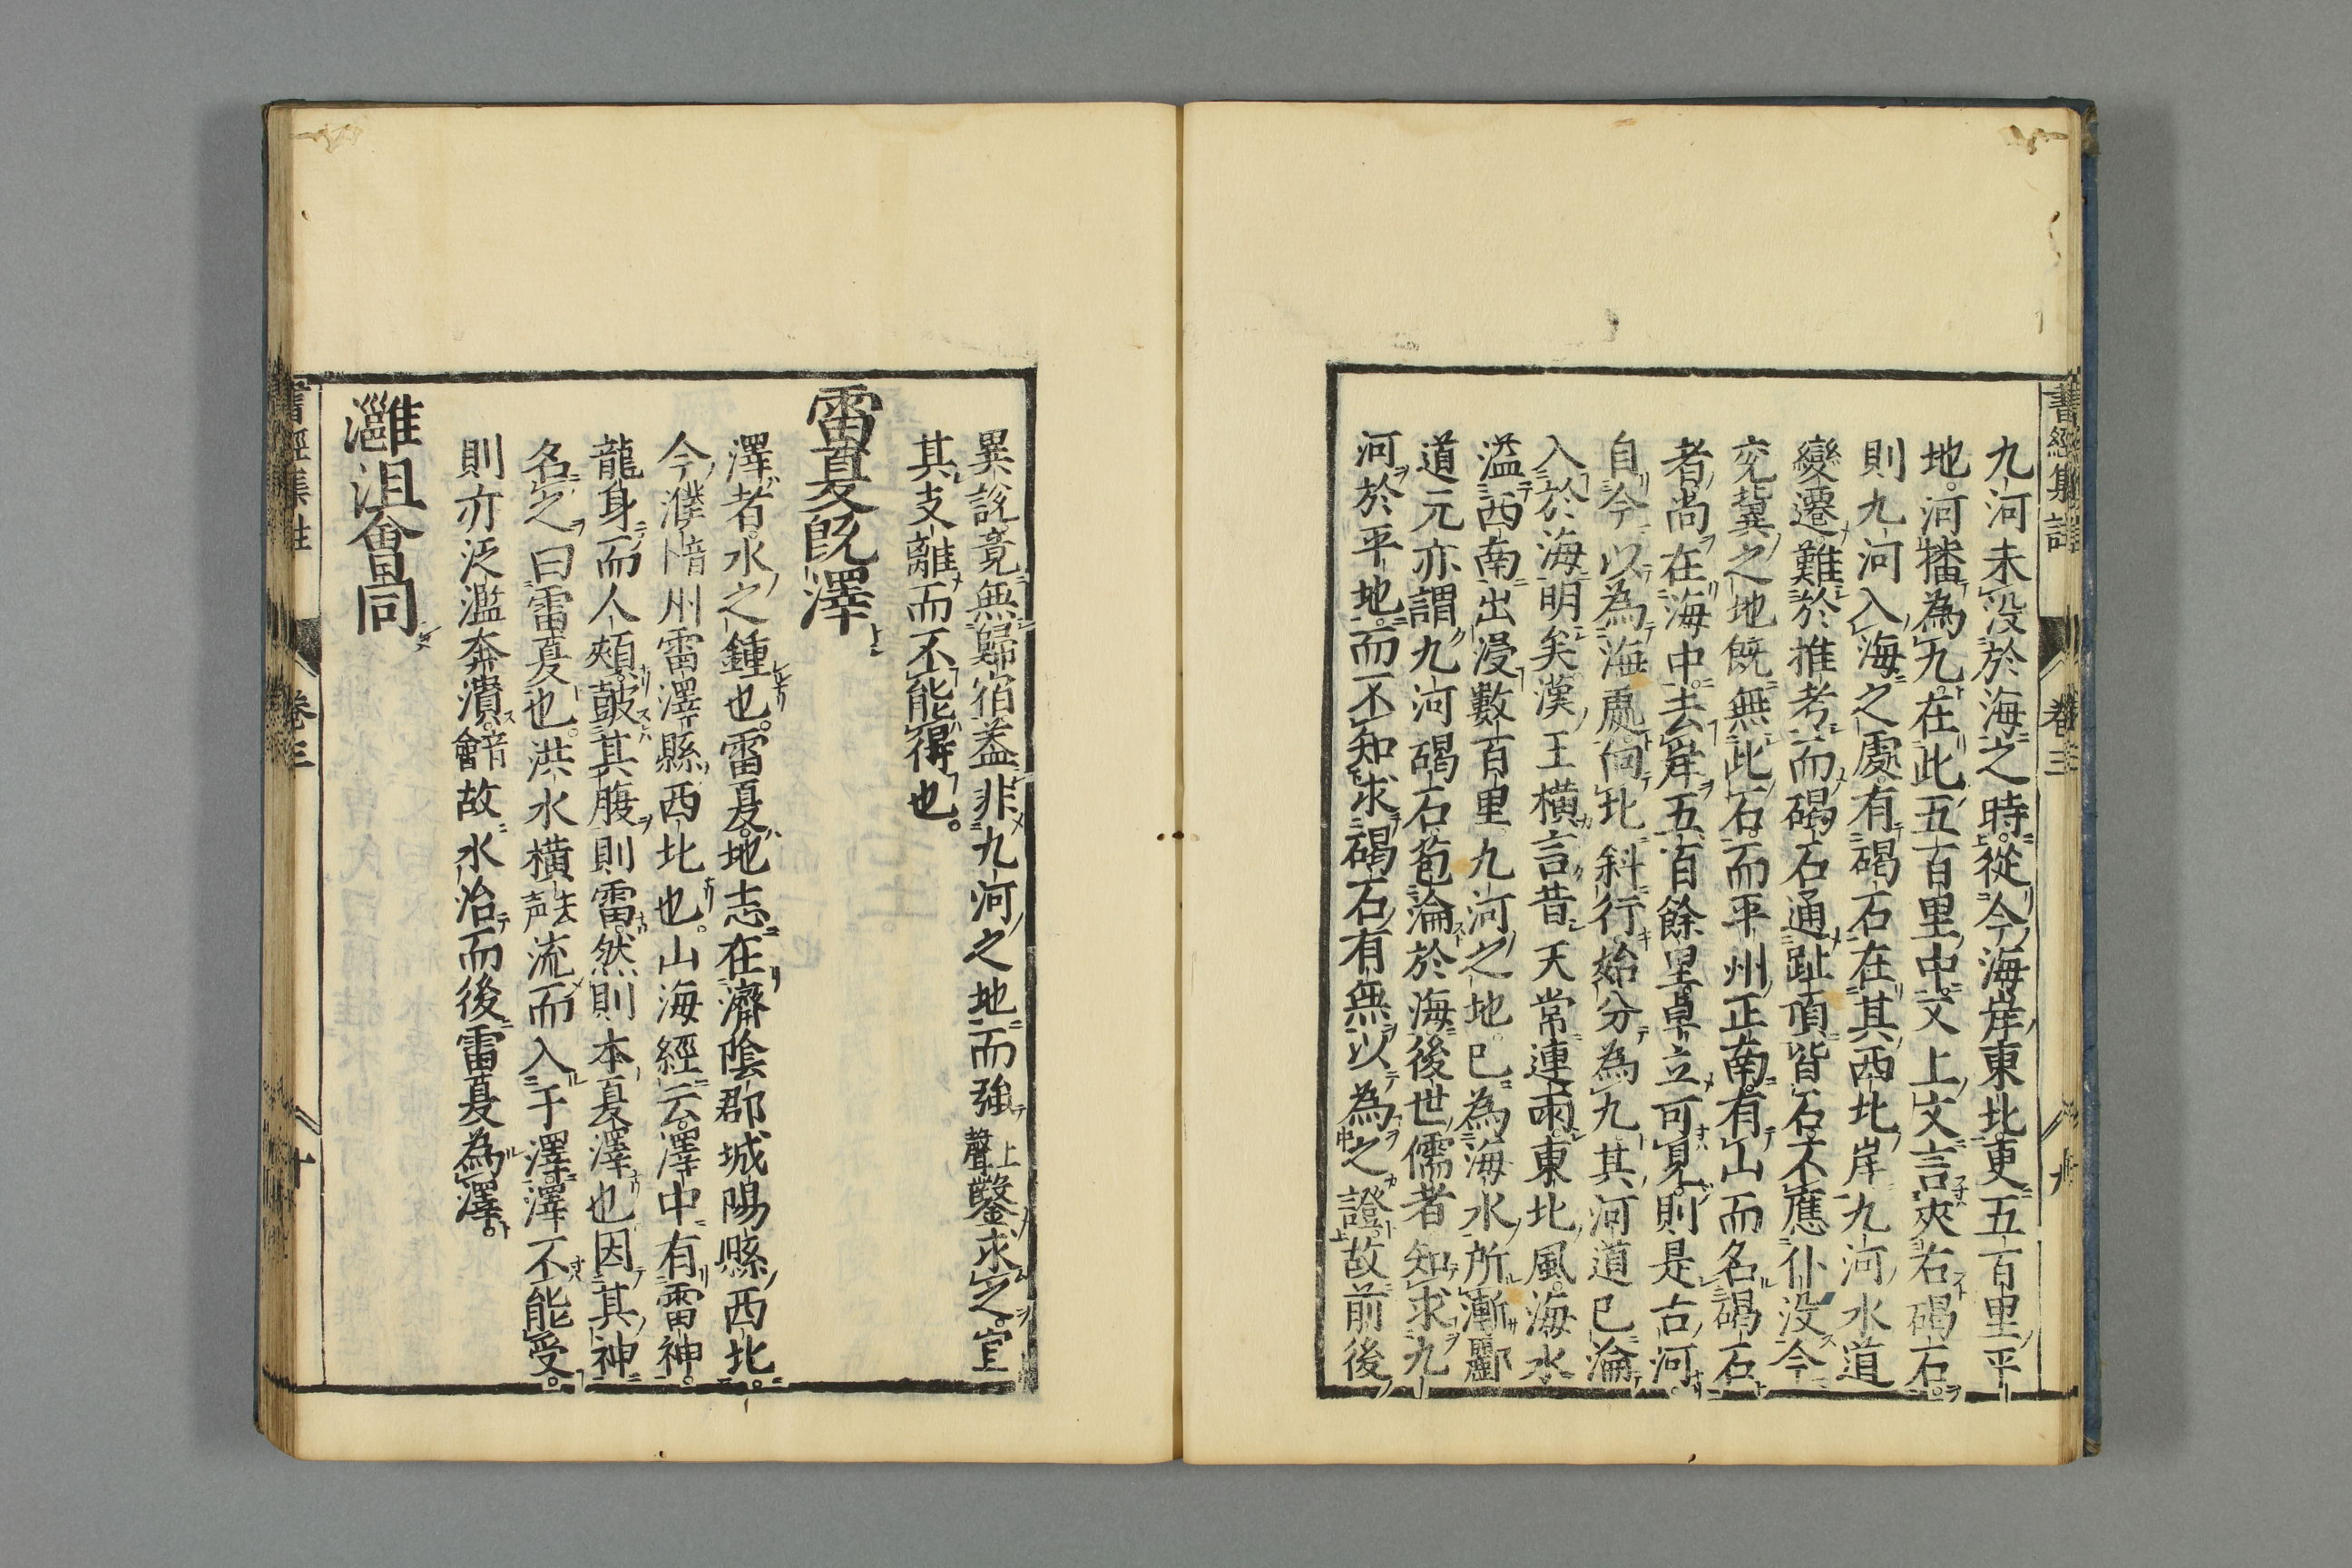 書經集註 卷三 九
九河未没於海之時。從今海岸東北。更五百里平
地。河播為九。在此五百里中。又上文言夾右碣石。
則九河入海之處。有碣石在其西北岸。九河水道
變遷。難於推考。而碣石通趾頂皆石。不應仆没。今
兗冀之地。既無此石。而平州正南。有山而名碣石
者。尚在海中。去岸五百餘里。卓立可見。則是古河。
自今以為海處。向北斜行。始分為九。其河道已淪
入於海明矣。漢王横言。昔天常連雨。東北風。海水
溢西南出。浸數百里。九河之地。已為海水所漸。酈
道元亦謂九河碣石苞淪於海。後世儒者知求九
河於平地。而不知求碣石有無以為之證。故前後
異說竟無歸宿。盖非九河之地。而強上聲鑿求之。宜
其支離而不能得也。
雷夏既澤
澤者。水之鍾也。雷夏。地志。在濟陰郡城陽縣西北。
今濮音卜州雷澤縣西北也。山海經云。澤中有雷神。
龍身而人頰。鼓其腹則雷。然則本夏澤也。因其神
名之。曰雷夏也。洪水横去声流而入于澤。澤不能受。
則亦泛濫奔潰。音會故水治而後。雷夏為澤。
灉沮會同
書經集註 卷三 十